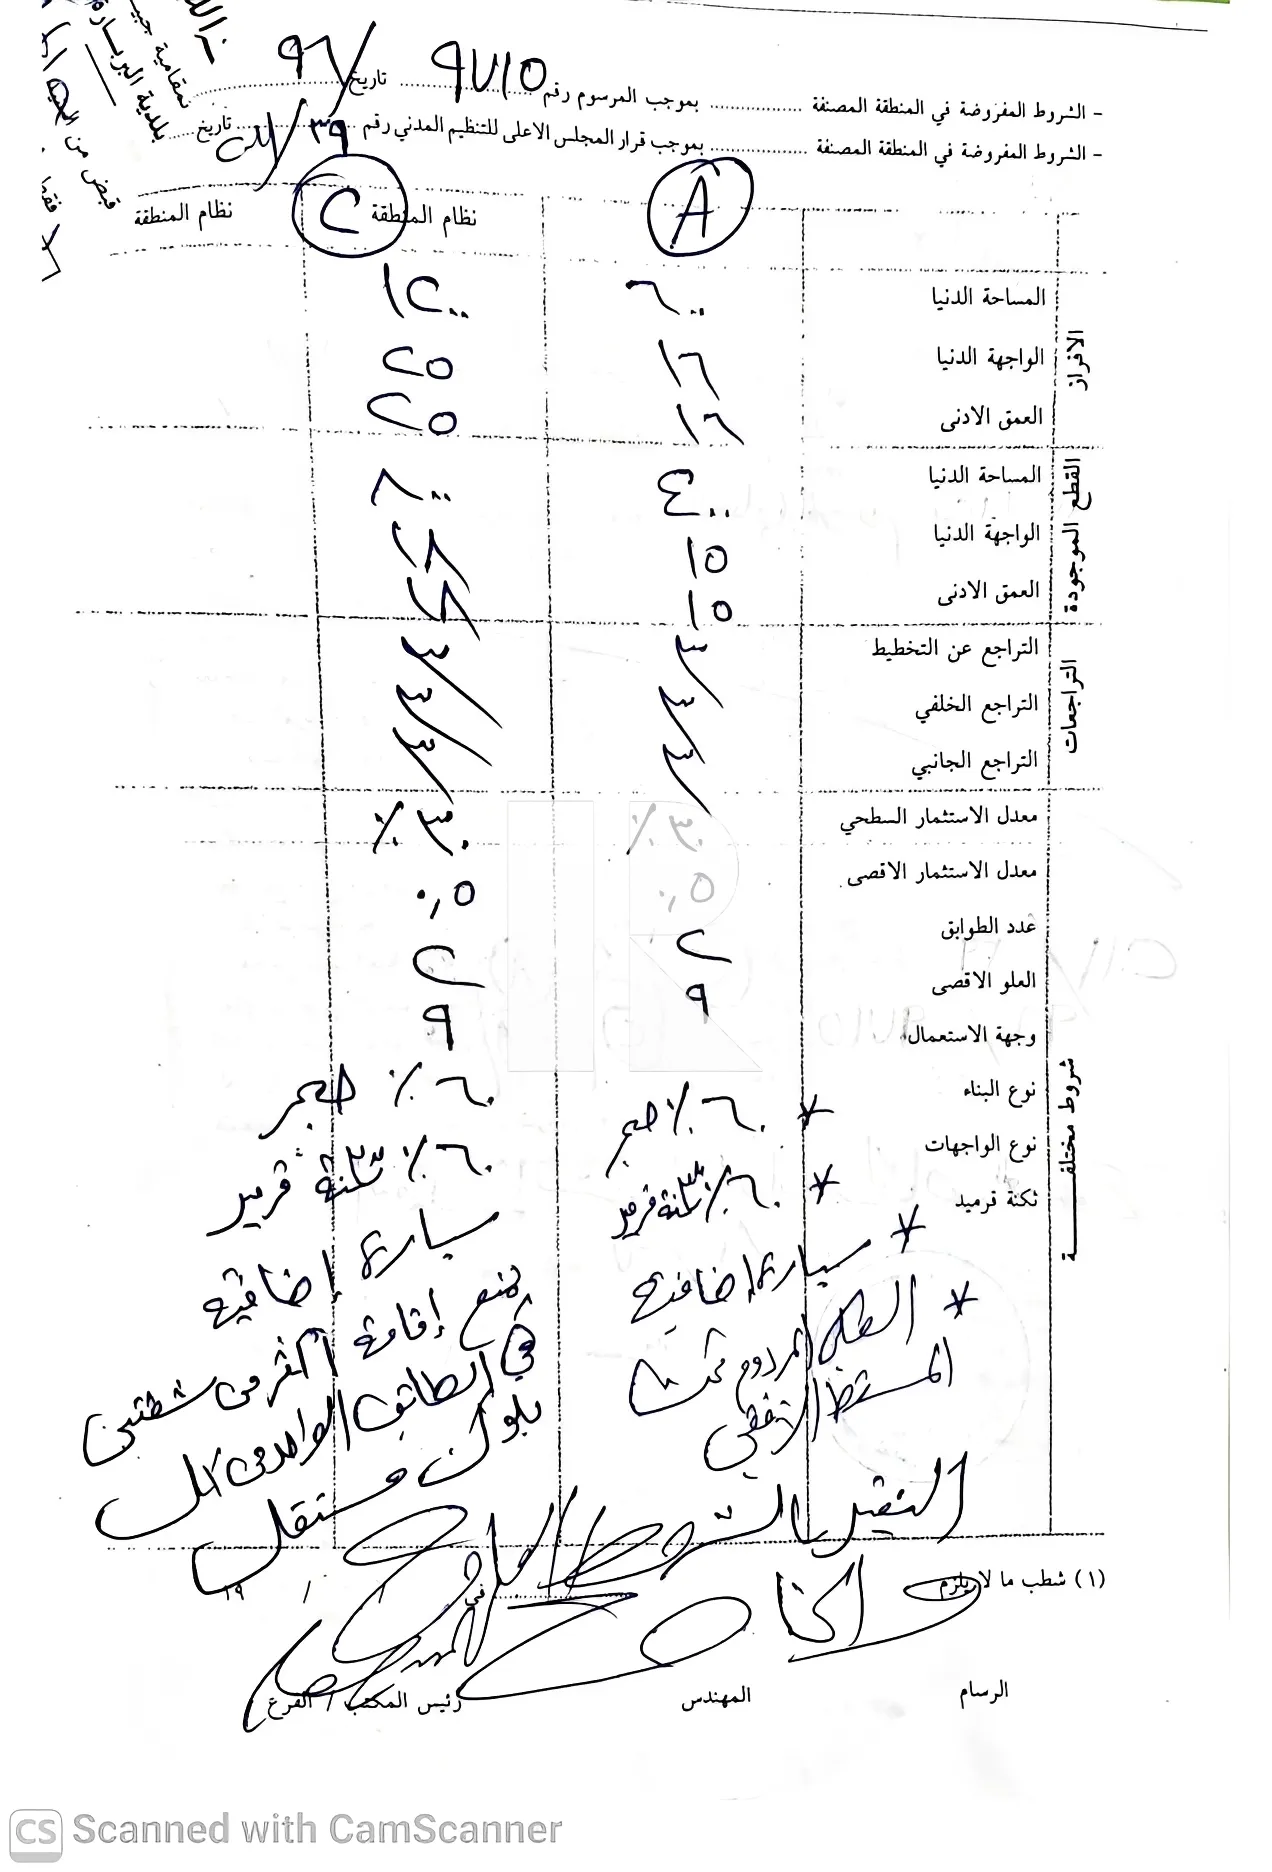 - الشروط المفروضة في المنطقة المصنفة ................ بموجب المرسوم رقم ٩٧١٥ تاريخ /٩٦
- الشروط المفروضة في المنطقة المصنفة ................ بموجب قرار المجلس الاعلى للتنظيم المدني رقم ٣٩ / تاريخ
بلدية البربارة
قبض من
فقط
A نظام المنطقة C نظام المنطقة
الافراز
المساحة الدنيا ٦٠٠ ١٢٠٠
الواجهة الدنيا ١٦ ٢٥
العمق الادنى ١٦ ٢٥
القطع الموجودة
المساحة الدنيا ٤٠٠ ٨٠٠
الواجهة الدنيا ١٥
العمق الادنى ١٥
التراجعات
التراجع عن التخطيط ٣/ ٣/
التراجع الخلفي ٣/ ٣/
التراجع الجانبي ٣/ ٣/
شروط مختلفة
معدل الاستثمار السطحي ٣٠٪ ٣٠٪
معدل الاستثمار الاقصى ٠,٥ ٠,٥
عدد الطوابق ٢ ٢
العلو الاقصى ٩ ٩
وجهة الاستعمال
نوع البناء
نوع الواجهات
ثكنة قرميد
* ٦٠٪ حجر
* ٦٠٪ ثكنة قرميد
* سيارة إضافية
* الطابق المردوم تحت
المسقط الافقي
٦٠٪ حجر
٦٠٪ ثكنة قرميد
سيارة إضافية
يمنع إقامة أكثر من شقتين
في الطابق الواحد من كل
بلوك مستقل
التقيد بالشروط العامة
والخاصة
(١) شطب ما لا يلزم
في / / ١٩
الرسام المهندس رئيس المكتب / الفرع
CS Scanned with CamScanner